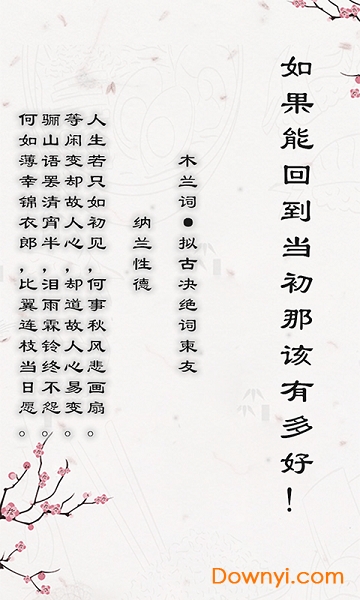 如果能回到当初那该有多好！
木兰词●拟古决绝词柬友
纳兰性德
人生若只如初见，何事秋风悲画扇。
等闲变却故人心，却道故人心易变。
骊山语罢清宵半，泪雨霖铃终不怨。
何如薄幸锦衣郎，比翼连枝当日愿。
Downyi.com